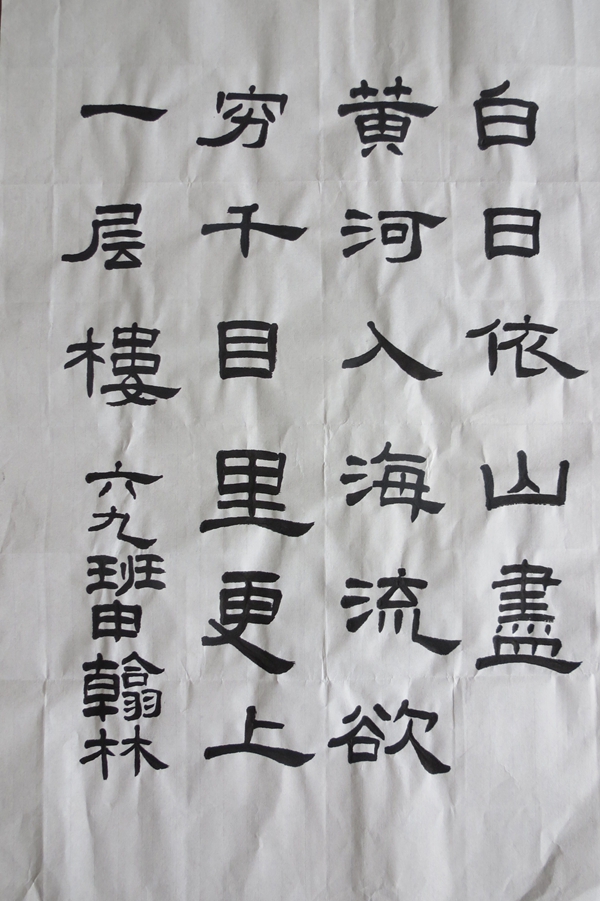 白日依山盡
黄河入海流欲
穷千目里更上
一层樓 六九班申翰林